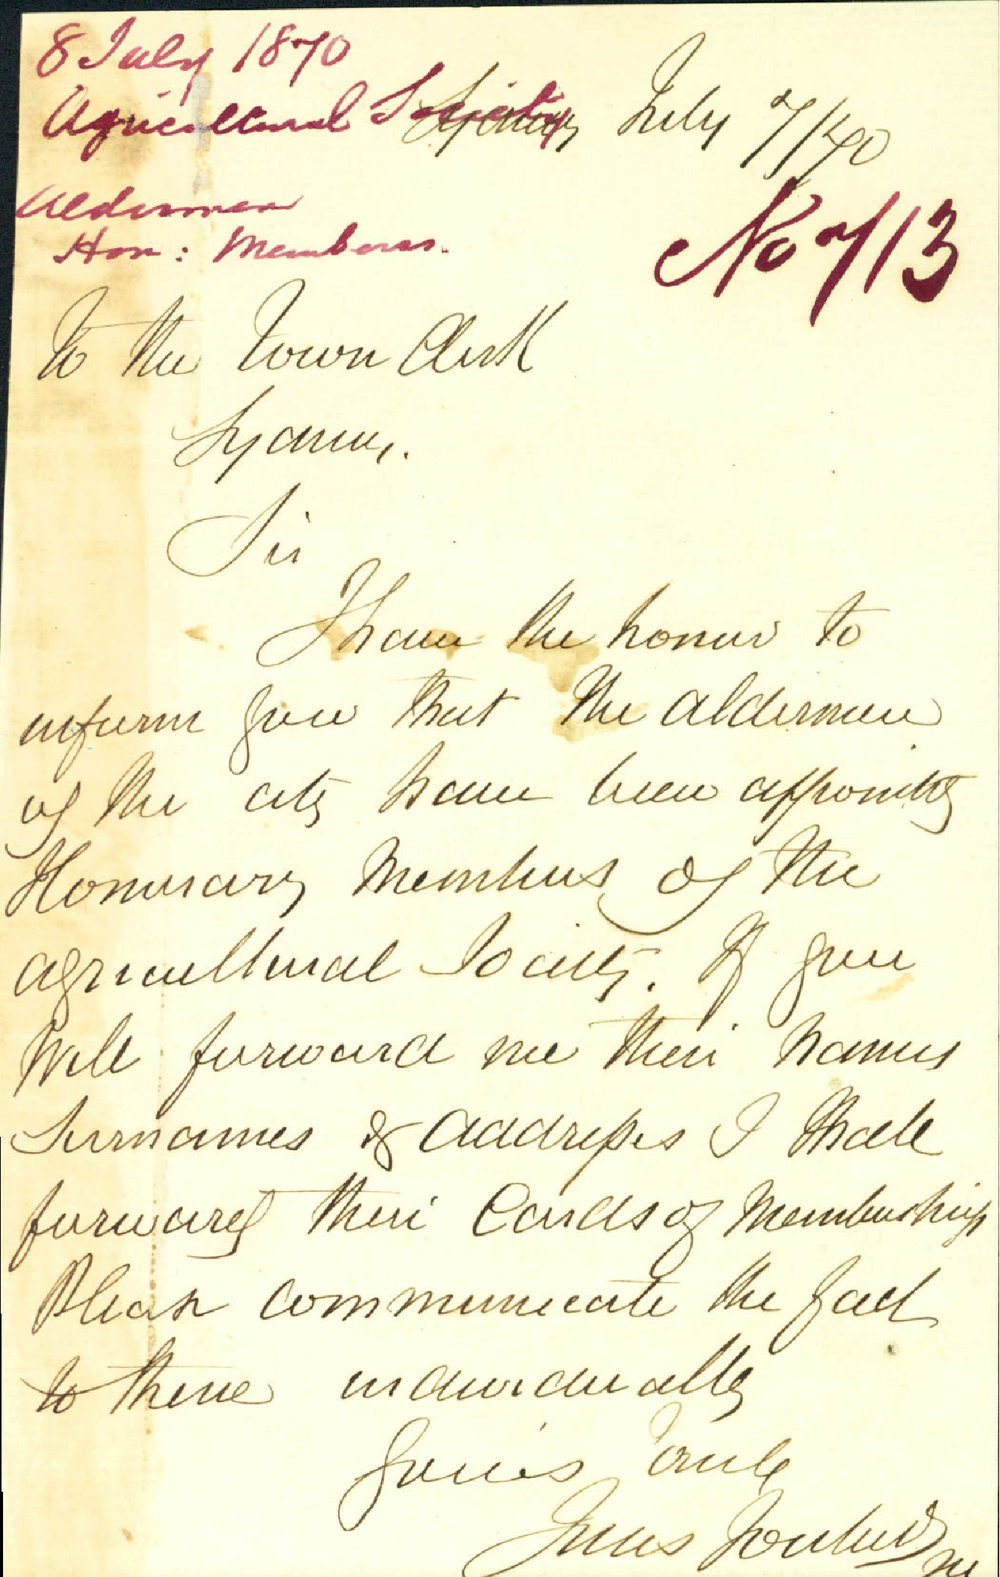 8 July 1870
Agricultural Society
Sydney July 7/70
Alderman
Hon: Members.
No 713
To the Town Clerk
Sydney.
Sir
I have the honor to
inform you that the aldermen
of the city have been appointed
Honorary Members of the
agricultural Society. If you
will forward me their names
Surnames & addresses I shall
forward their Cards of Membership
Please communicate the fact
to them individually
Yours truly
Jules Joubert